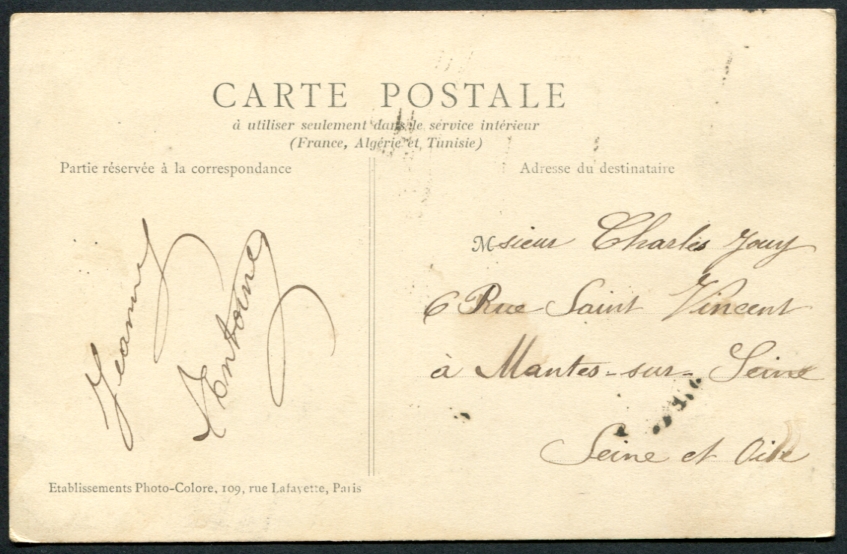 CARTE POSTALE
à utiliser seulement dans le service intérieur
(France, Algérie et Tunisie)
Partie réservée à la correspondance
Adresse du destinataire
Jeanne
Antoine
Msieur Charles Jouy
6 Rue Saint Vincent
à Mantes-sur-Seine
Seine et Oise
Etablissements Photo-Colore, 109, rue Lafayette, Paris